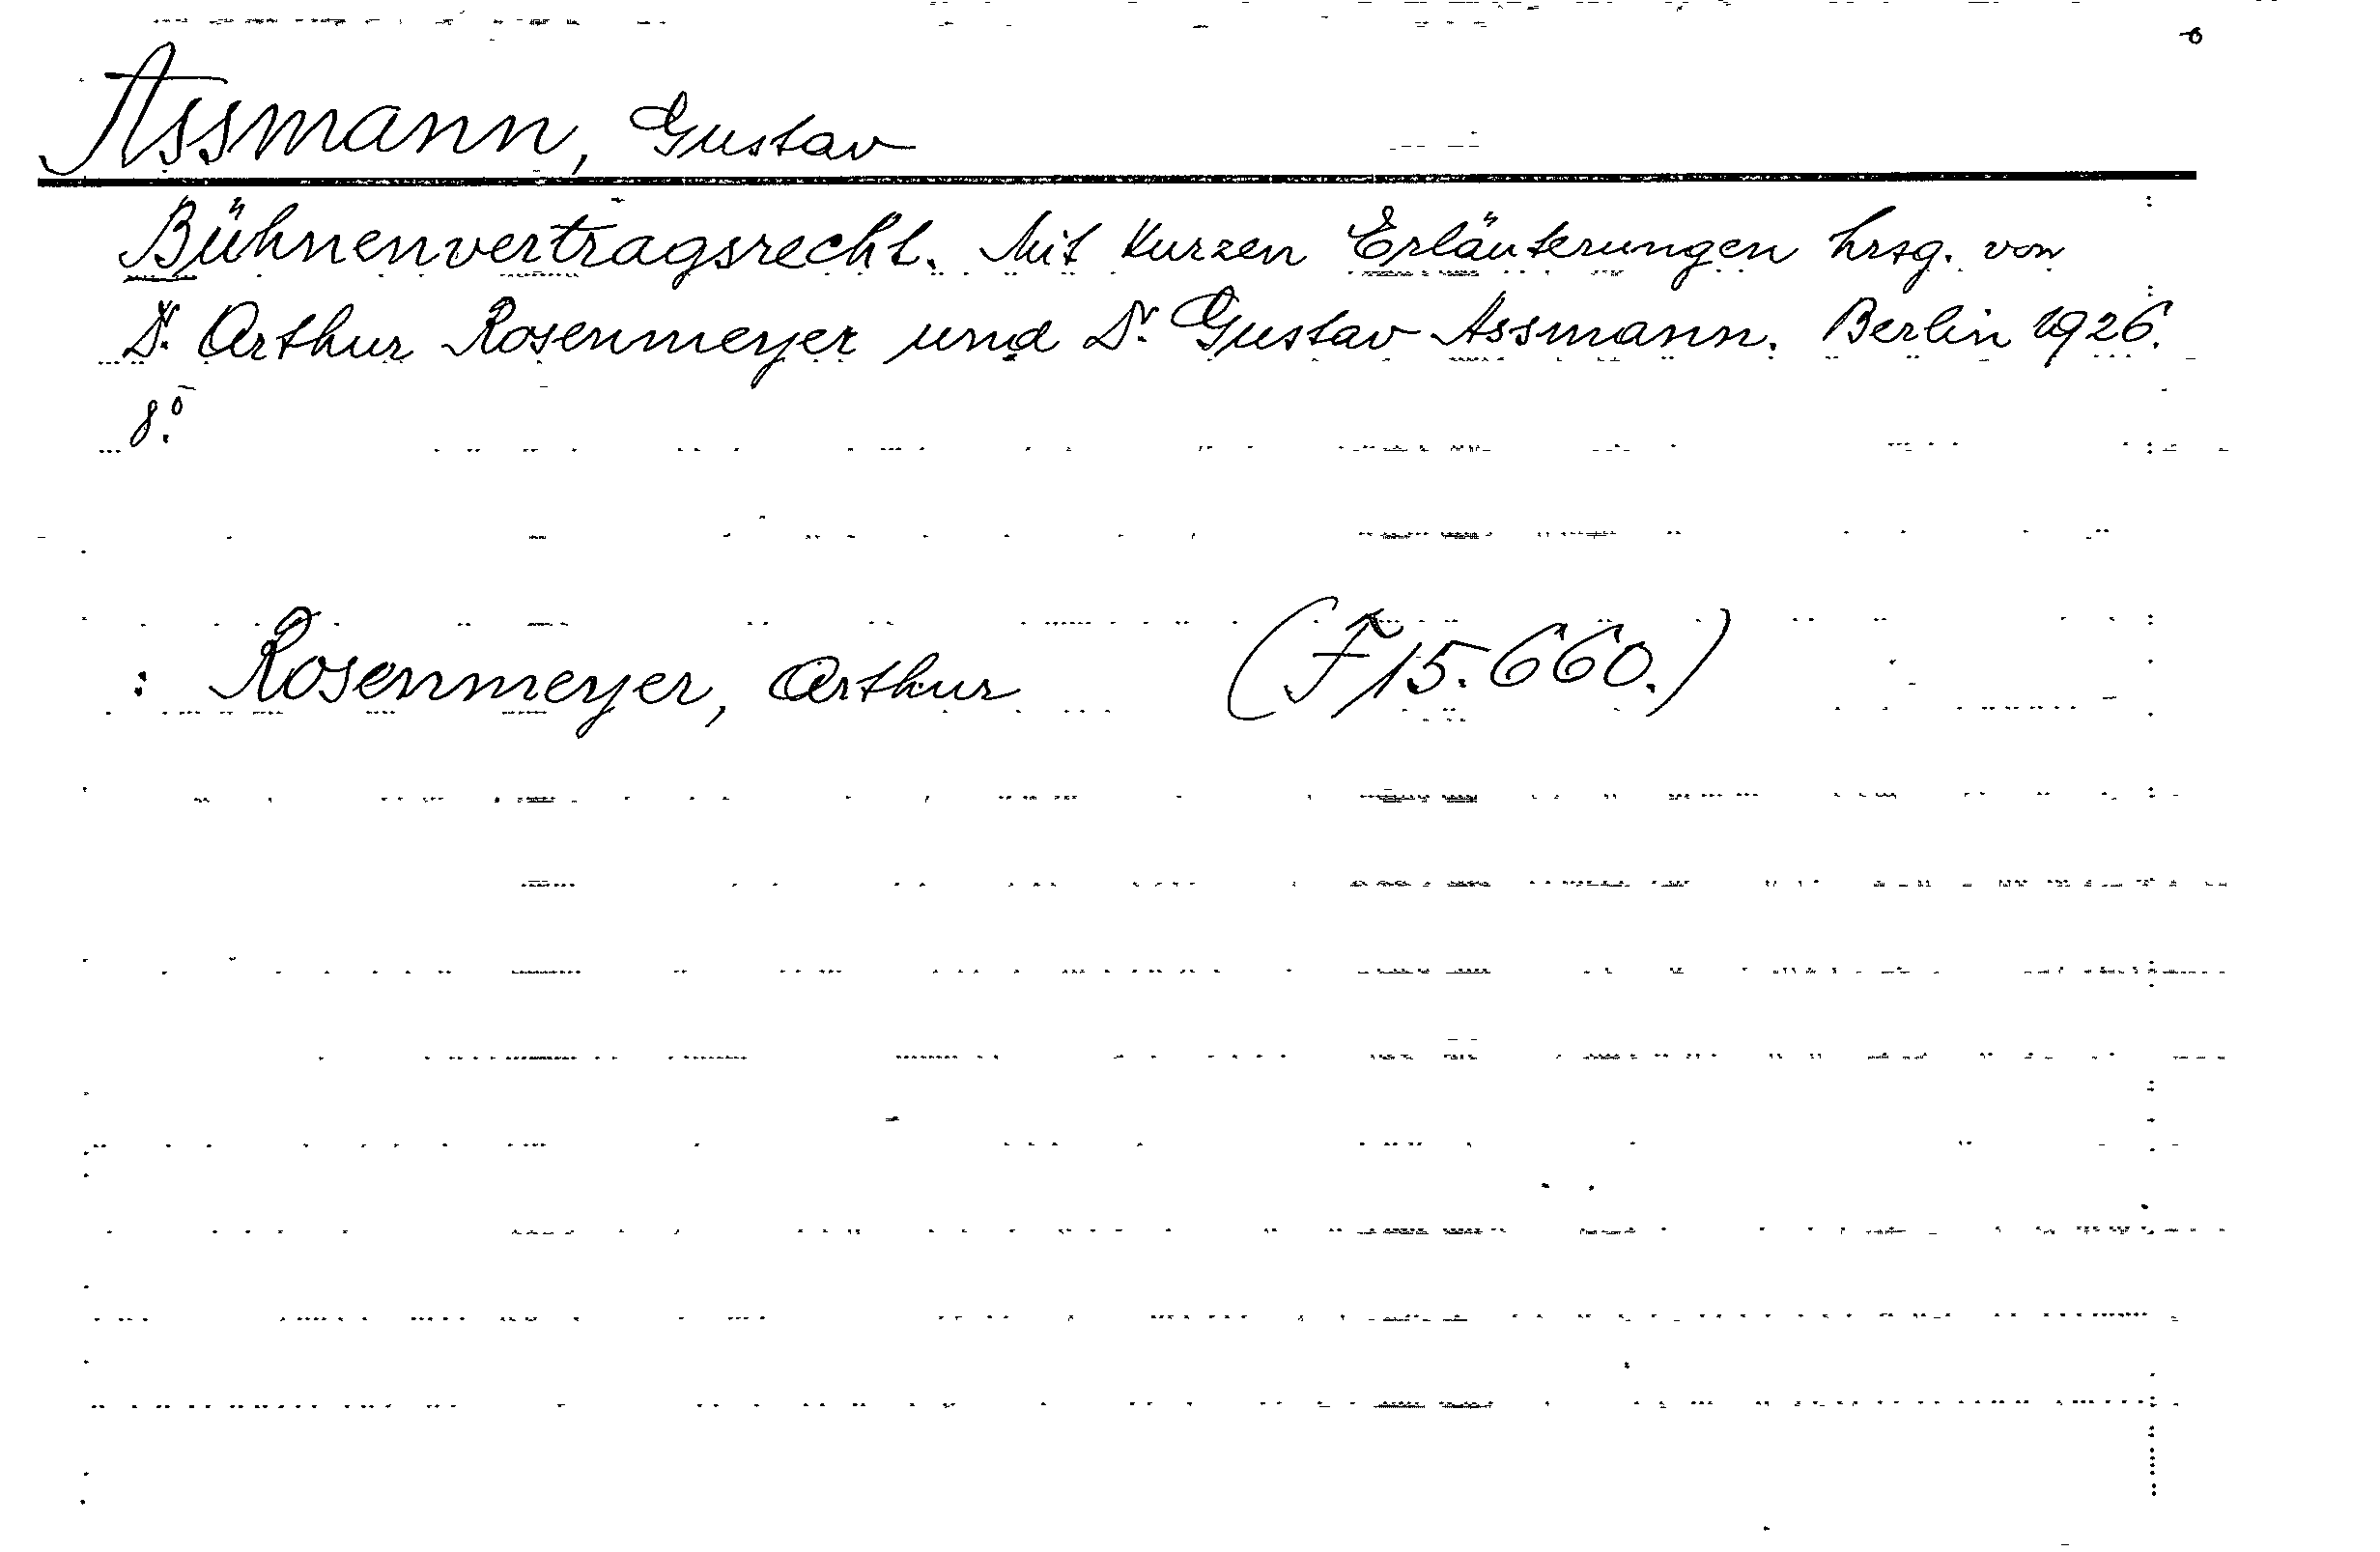 Assmann, Gustav
Bühnenvertragsrecht. Mit kurzen Erläuterungen hrsg. von
Dr. Arthur Rosenmeyer und Dr. Gustav Assmann. Berlin 1926.
8°.
: Rosenmeyer, Arthur (F 15.660.)